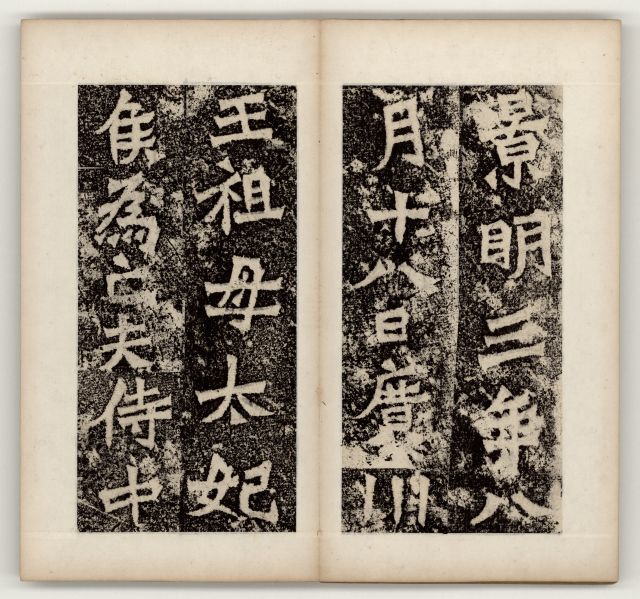 景明三年八
月十八日廣川
王祖母太妃
侯為亡夫侍中